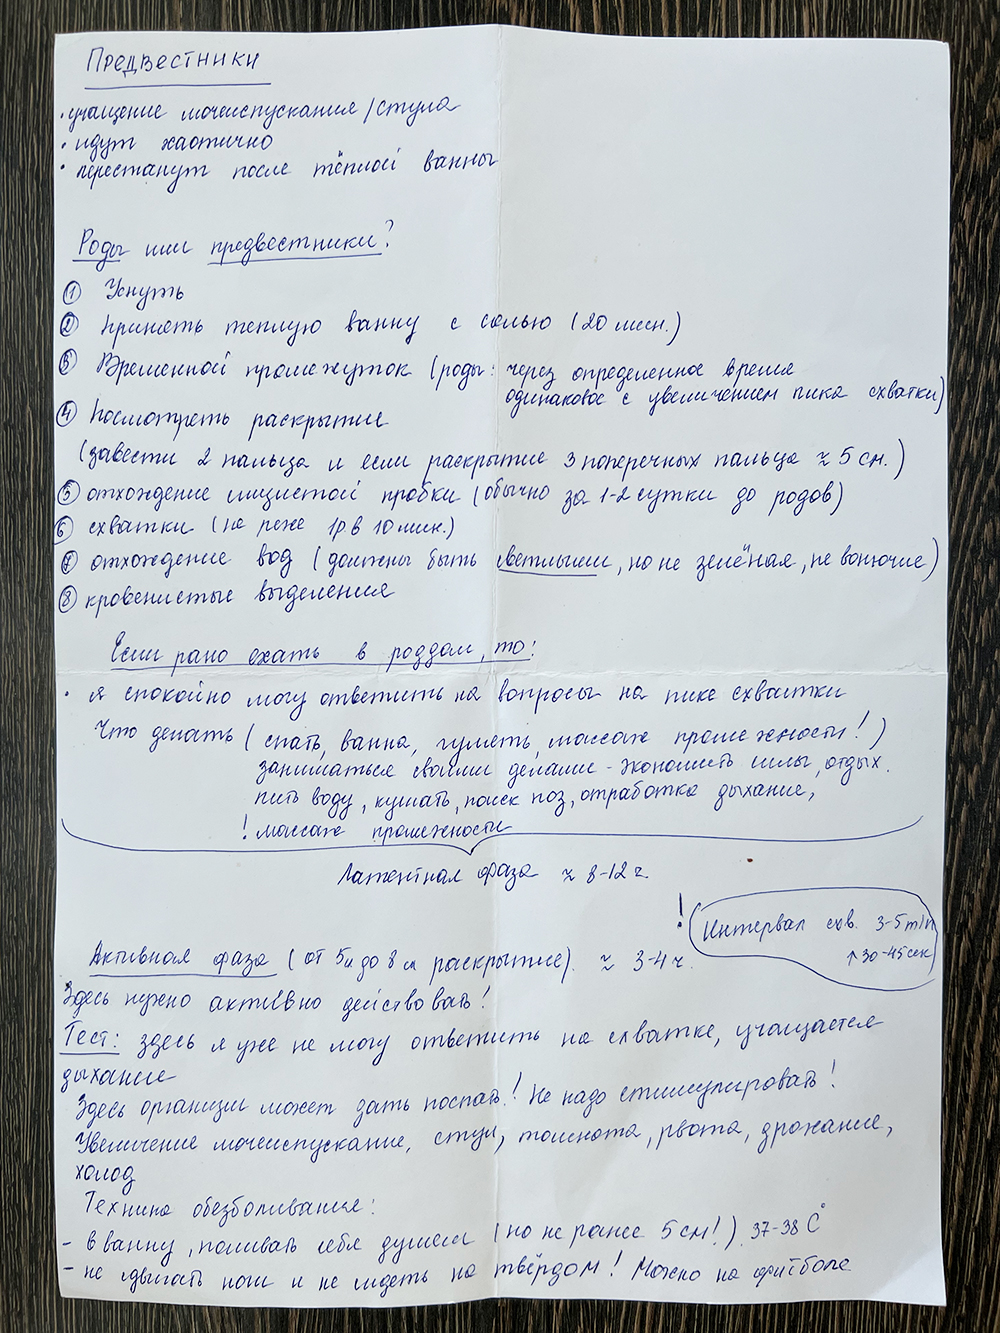 Предвестники
· учащение мочеиспускания/стула
· идут хаотично
· перестанут после тёплой ванны
Роды или предвестники?
① Уснуть
② Принять теплую ванну с солью (20 мин.)
③ Временной промежуток (роды: через определенное время
одинаковое с увеличением пика схватки)
④ Посмотреть раскрытие
(завести 2 пальца и если раскрытие 3 поперечных пальца ≈ 5 см.)
⑤ отхождение слизистой пробки (обычно за 1-2 сутки до родов)
⑥ схватки (не реже 1р в 10 мин.)
⑦ отхождение вод (должны быть светлыми, но не зелёная, не вонючие)
⑧ кровенистые выделения
Если рано ехать в роддом, то:
· я спокойно могу ответить на вопросы на пике схватки
Что делать (спать, ванна, гулять, массаж промежности!)
заниматься своими делами - экономить силы, отдых.
пить воду, кушать, поиск поз, отработка дыхание,
! массаж промежности
Латентная фаза ≈ 8-12 ч.
! Интервал схв. 3-5 min
↑ 30-45 сек
Активная фаза (от 5 и до 8 см раскрытие). ≈ 3-4 ч.
Здесь нужно активно действовать!
Тест: здесь я уже не могу ответить на схватке, учащается
дыхание
Здесь организм может дать поспать! Не надо стимулировать!
Увеличение мочеиспускание, стул, тошнота, рвота, дрожание,
холод
Техника обезболивания:
- в ванну, поливать себя душем (но не ранее 5 см!). 37-38 C°
- не сдвигать ноги и не сидеть на твёрдом! Можно на фитболе